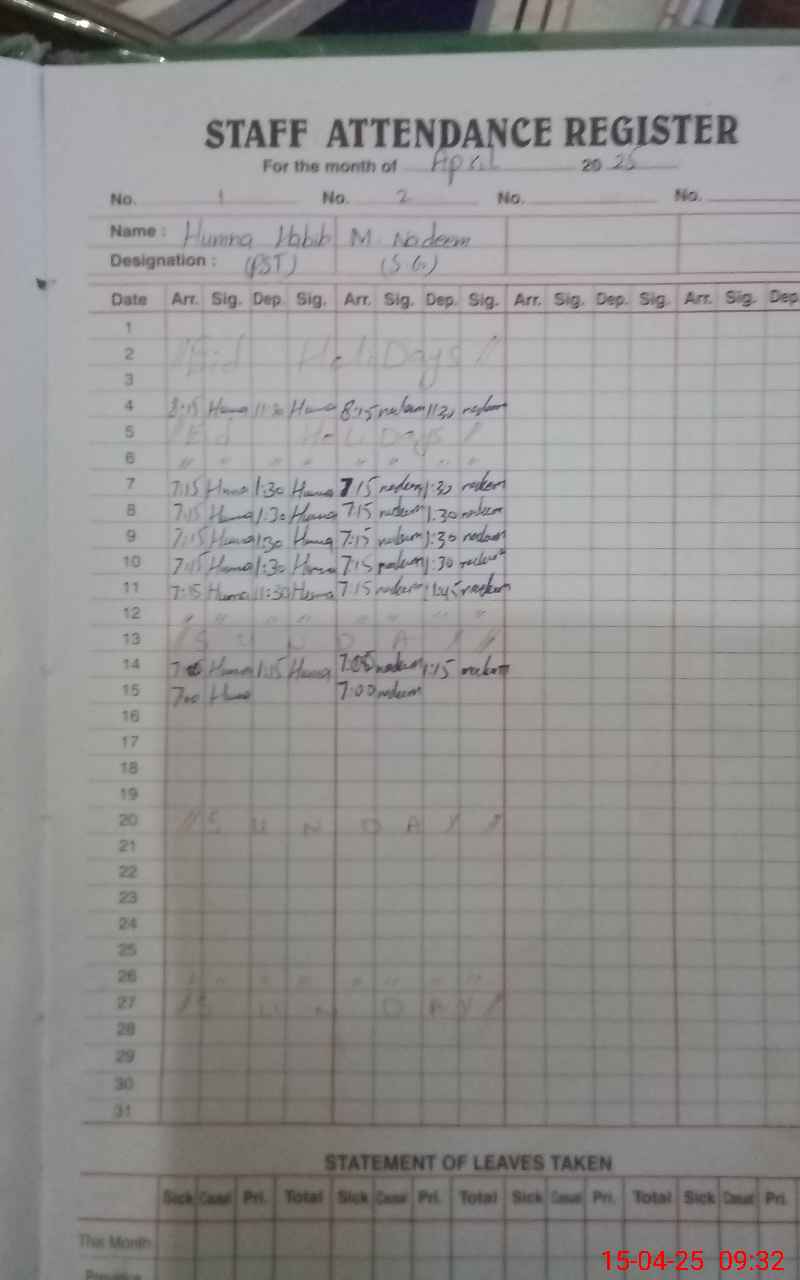 STAFF ATTENDANCE REGISTER
For the month of April 2025
No. 1 No. 2 No. No.
Name : Humna Habib M. Nadeem
Designation : (PST) (S.G.)
Date Arr. Sig. Dep. Sig. Arr. Sig. Dep. Sig. Arr. Sig. Dep. Sig. Arr. Sig. Dep
1
2 // Eid HoliDays //
3
4 8:15 Humna 11:30 Humna 8:15 nadeem 11:30 nadeem
5 // Eid HoliDays //
6 " " " " " " " "
7 7:15 Humna 1:30 Humna 7:15 nadeem 1:30 nadeem
8 7:15 Humna 1:30 Humna 7:15 nadeem 1:30 nadeem
9 7:15 Humna 1:30 Humna 7:15 nadeem 1:30 nadeem
10 7:15 Humna 1:30 Humna 7:15 nadeem 1:30 nadeem
11 7:15 Humna 11:30 Humna 7:15 nadeem nadeem
12 " " " " " " " "
13 // S U N D A Y //
14 Humna 1:15 Humna 7:05 nadeem 1:15 nadeem
15 7:00 Humna 7:00 nadeem
16
17
18
19
20 // S U N D A Y //
21
22
23
24
25
26 " " " " " " " "
27 // S U N D A Y //
28
29
30
31
STATEMENT OF LEAVES TAKEN
Sick Casual Pri. Total Sick Casual Pri. Total Sick Casual Pri. Total Sick Casual Pri.
This Month
Previous
15-04-25 09:32